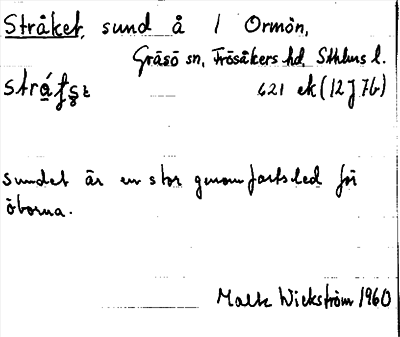 Stråket, sund å 1 Ormön,
Gräsö sn, Frösåkers hd, Sthlms l.
621 ek (12 J 7b)
sundet är en stor genomfartsled för
öborna.
Malte Wickström 1960